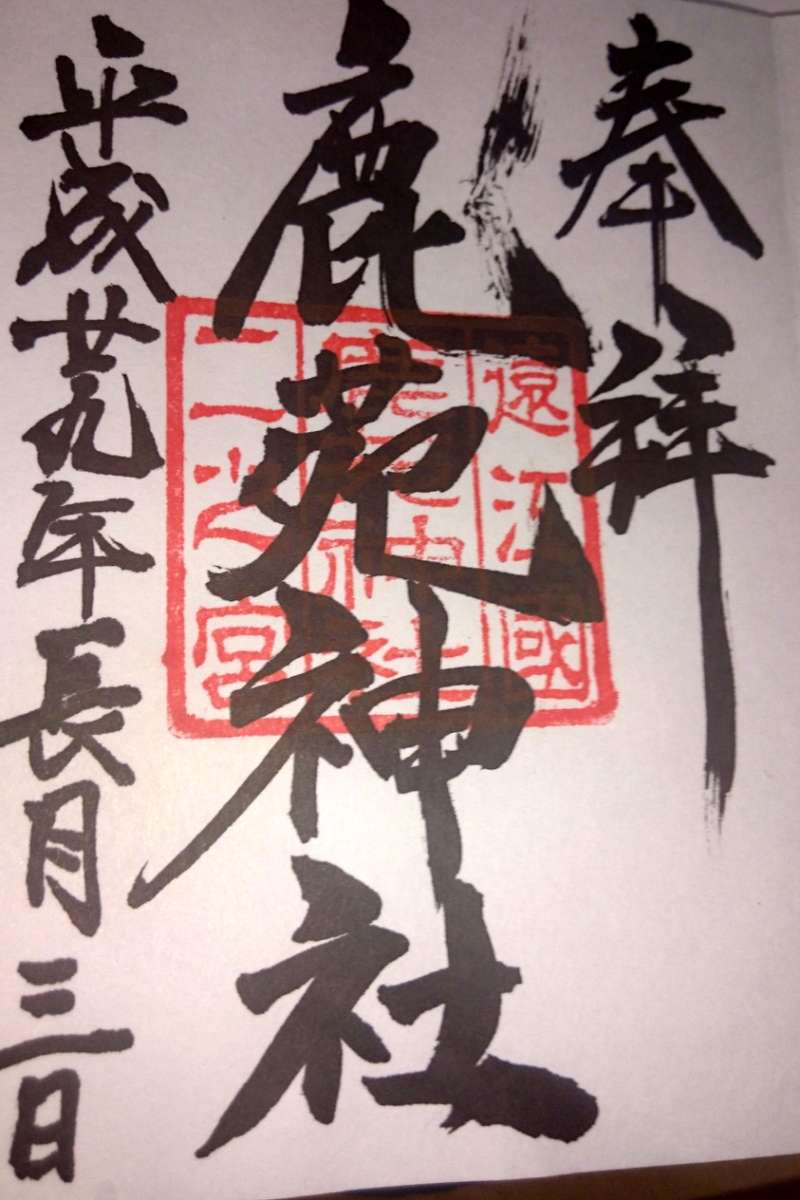 奉拝
鹿苑神社
平成廿九年長月三日
遠江國
鹿苑神社
二之宮